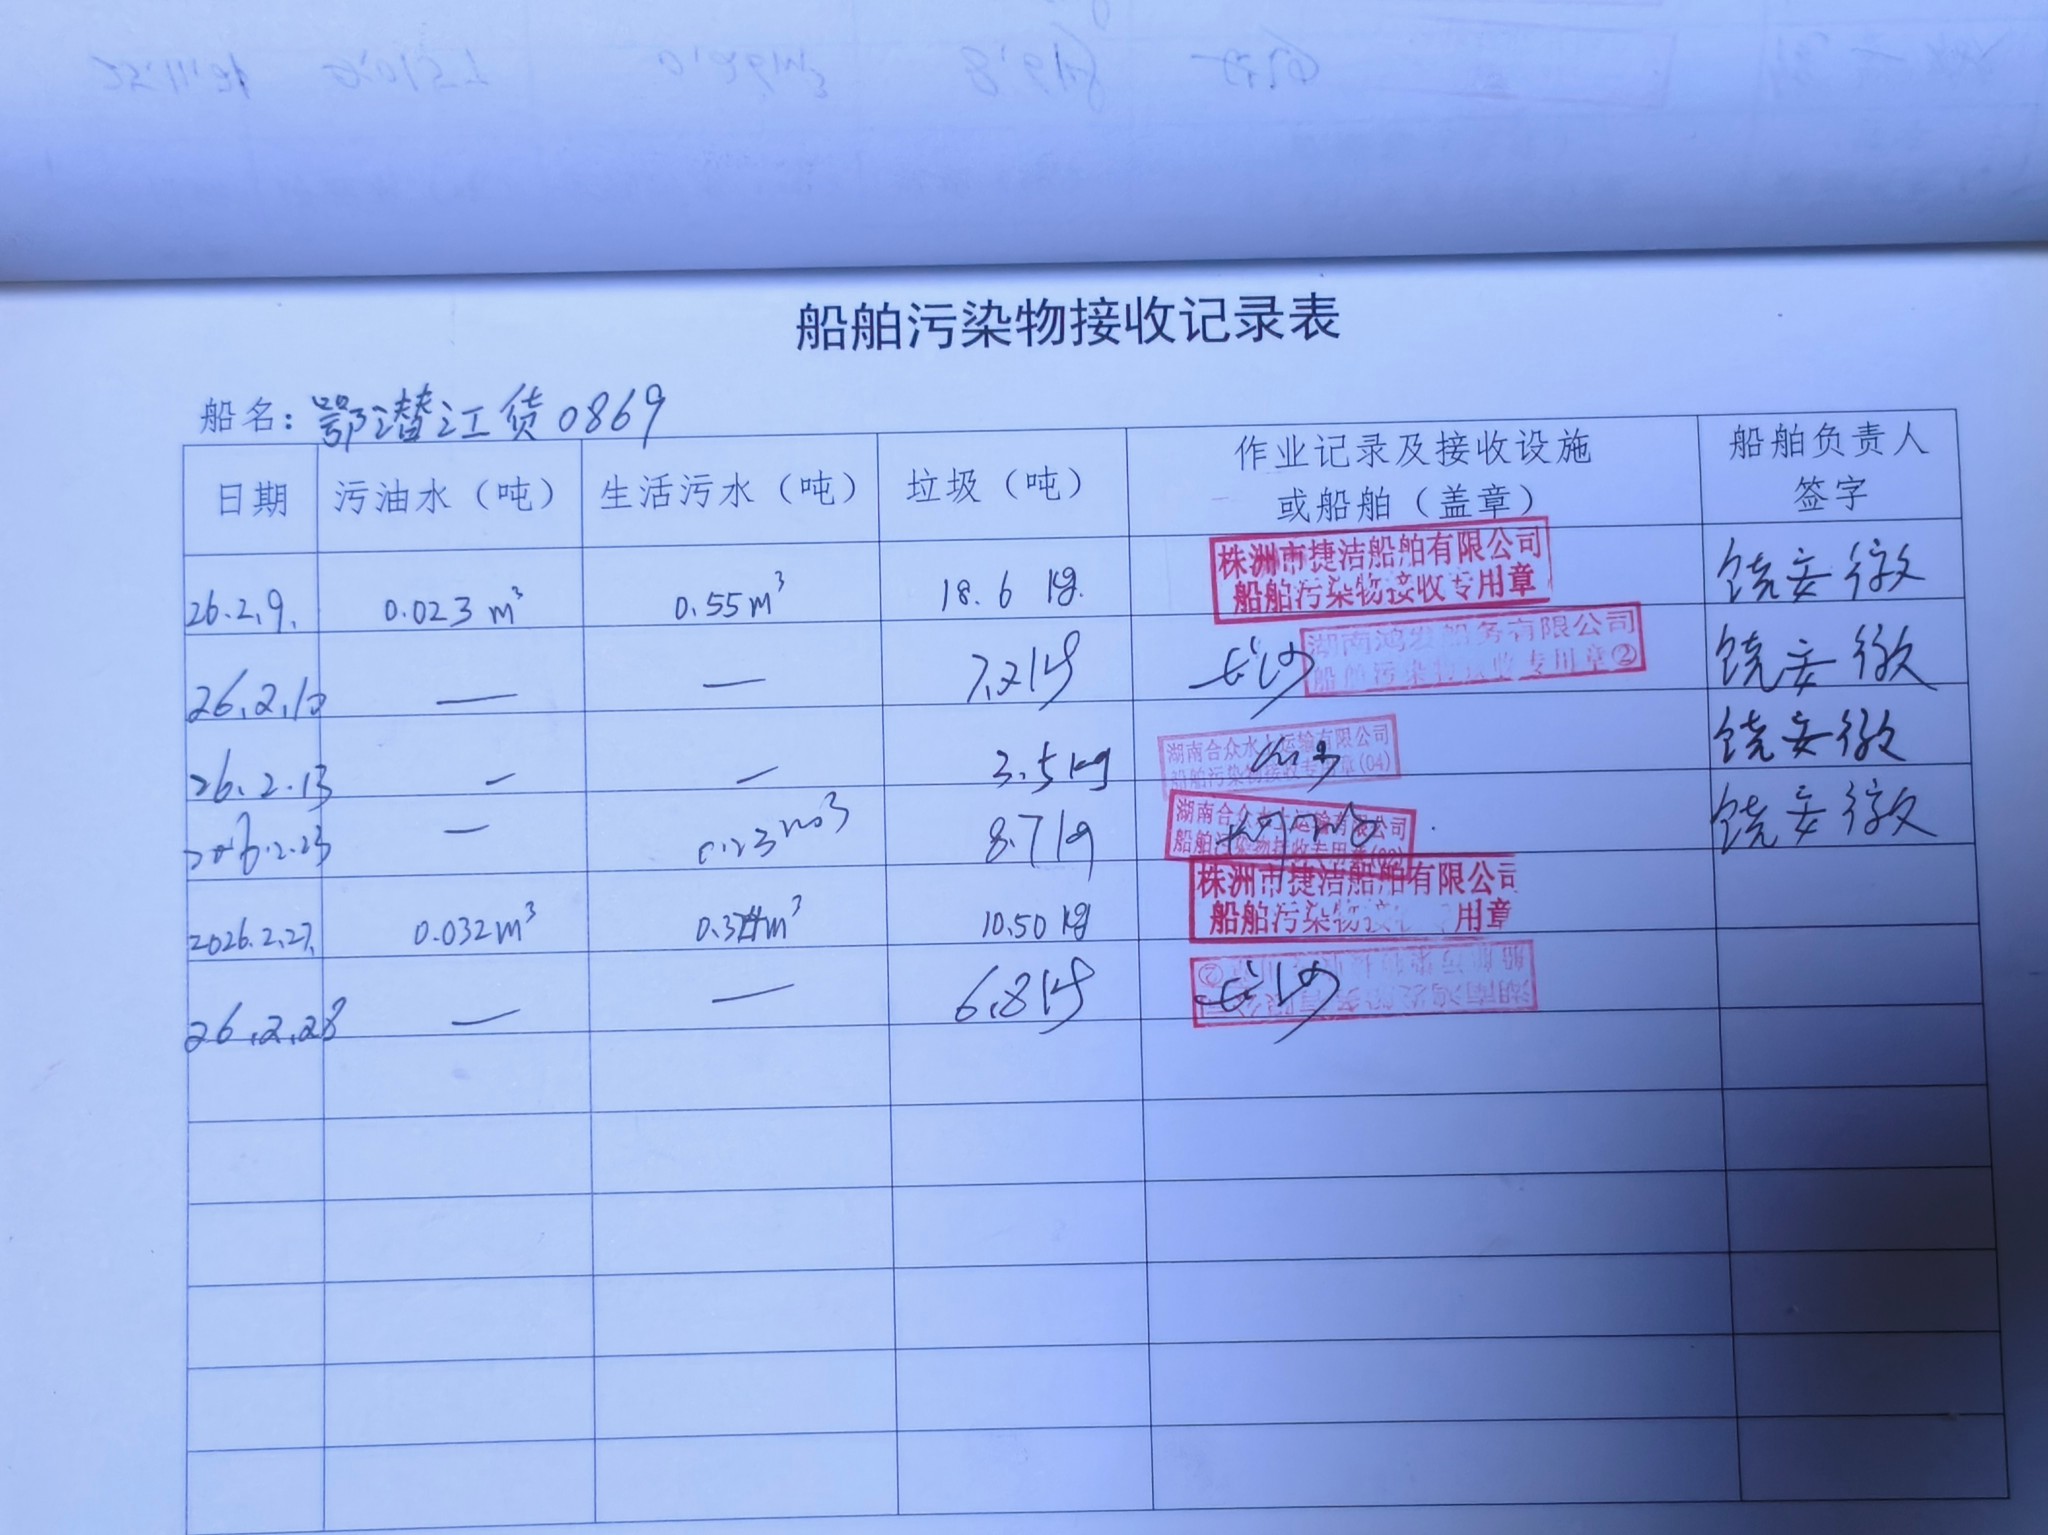 船舶污染物接收记录表
船名：鄂潜江货0869
日期 污油水（吨） 生活污水（吨） 垃圾（吨） 作业记录及接收设施或船舶（盖章） 船舶负责人签字
26.2.9. 0.023 m³ 0.55m³ 18.6 kg. 株洲市捷洁船舶有限公司 船舶污染物接收专用章 饶安徽
26.2.10 — — 7.2kg 长沙 湖南鸿发船务有限公司 船舶污染物接收专用章② 饶安徽
26.2.13 — — 3.5kg 湖南合众水上运输有限公司 船舶污染物接收专用章(04) 饶安徽
2026.2.23 — 0.23m³ 8.7kg 湖南合众水上运输有限公司 船舶污染物接收专用章 饶安徽
2026.2.27. 0.032m³ m³ 10.50 kg 株洲市捷洁船舶有限公司 船舶污染物接 用章
26.2.28 — — 6.8kg 长沙 湖南鸿发船务有限公司 船舶污染物接收专用章②